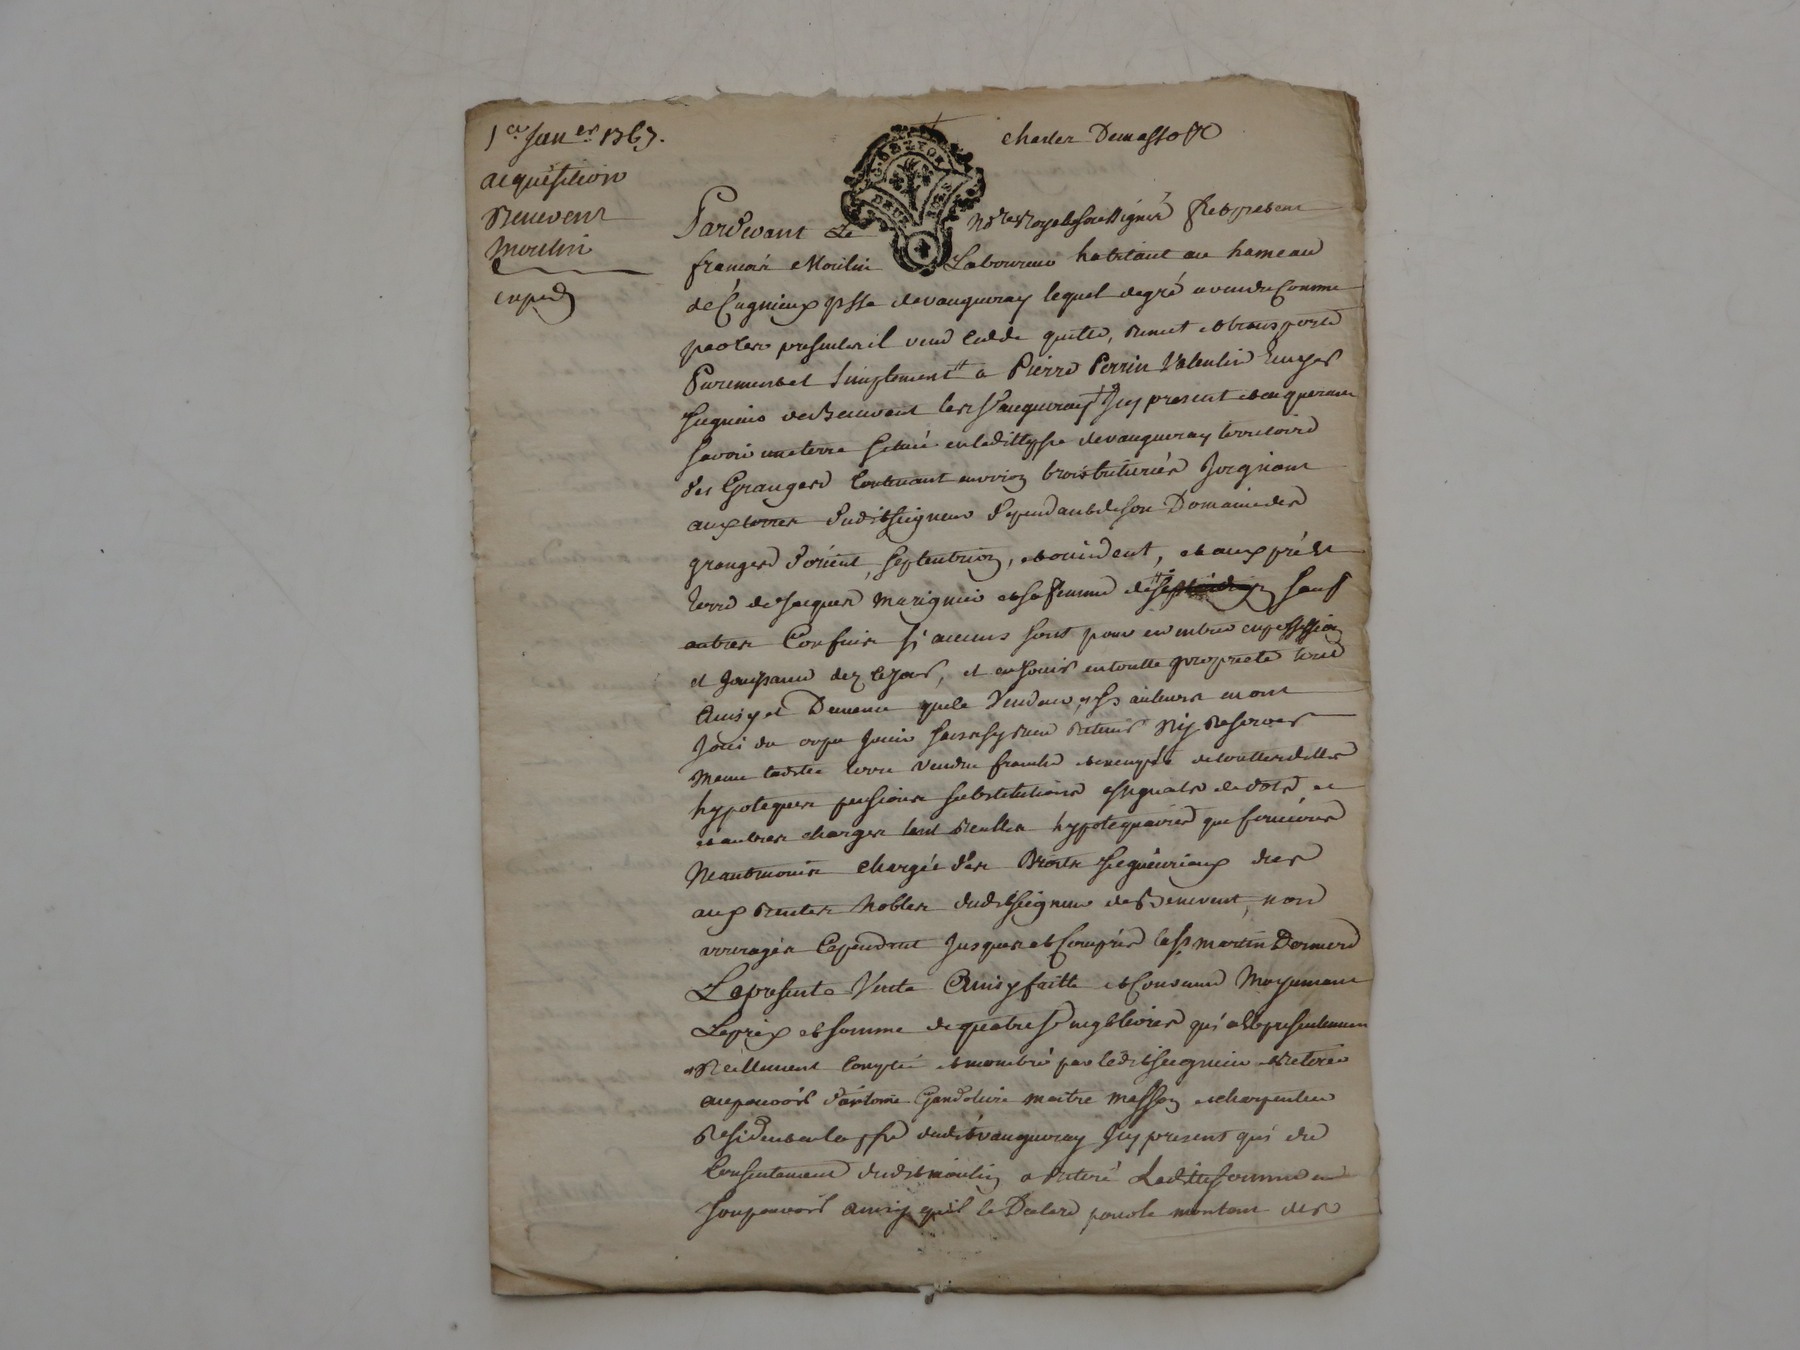 1er Janer 1767.
acquisition
Benevent
Moulin
exped
charles Demasso
G. DE LYON
DEUX
Pardevant Le Nore Royal soussigné fut present
francois Moulin Laboureur habitant au hameau
de psse de vaugneray lequel de gré a vendu comme
par les presentes il vend cedde quitte, remet et transporte
Purement et simplement a Pierre Perrin Valentin
seigneur de Benevent les Vaugneray icy present et acquereur
savoir une terre scituée en laditte psse de vaugneray territoire
des Granges Contenant environ trois bicherées Joignant
aux terres dudit seigneur dependant de son Domaine des
granges d'orient, septentrion, et occident, et aux prés et
terre de Jacques Marignier et sa femme de sauf
autres Confins sy aucuns sont pour en entrer en possession
et Jouissance dez ce jour, et en jouir en toutte proprieté tout
Ainsy et Dememe que le Vendeur et ses auteurs en ont
Joui du ou pu Jouir sans sy rien retenir Ny Reserver
Meme laditte terre vendue franche et exempte de touttes dettes
hypoteques pensions substitutions assignats de dots et
et autres charges tant reelles hypotequaires que foncieres
Neantmoins chargée des Droits seigneuriaux dus
aux Rentes Nobles dudit seigneur de Benevent, non
arreragés Cependant Jusques et Compris la St martin Derniere
La presente Vente Ainsy faitte et Consentie Moyennant
Le prix et somme de quatre vingt livres qui a été presentement
Réellement Compté et nombré par ledit seigneur et Retiré
au pouvoir d'antoine maitre masson et charpentier
Resident en la psse dudit vaugneray icy present qui du
Consentement dudit moulin a Retiré Laditte somme en
son pouvoir ainsy qu'il le Declare pour le montant des